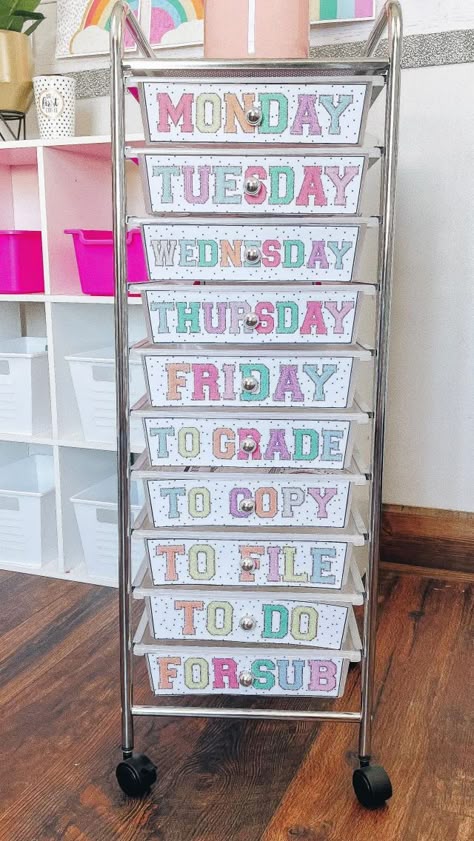 MONDAY
TUESDAY
WEDNESDAY
THURSDAY
FRIDAY
TO GRADE
TO COPY
TO FILE
TO DO
FOR SUB